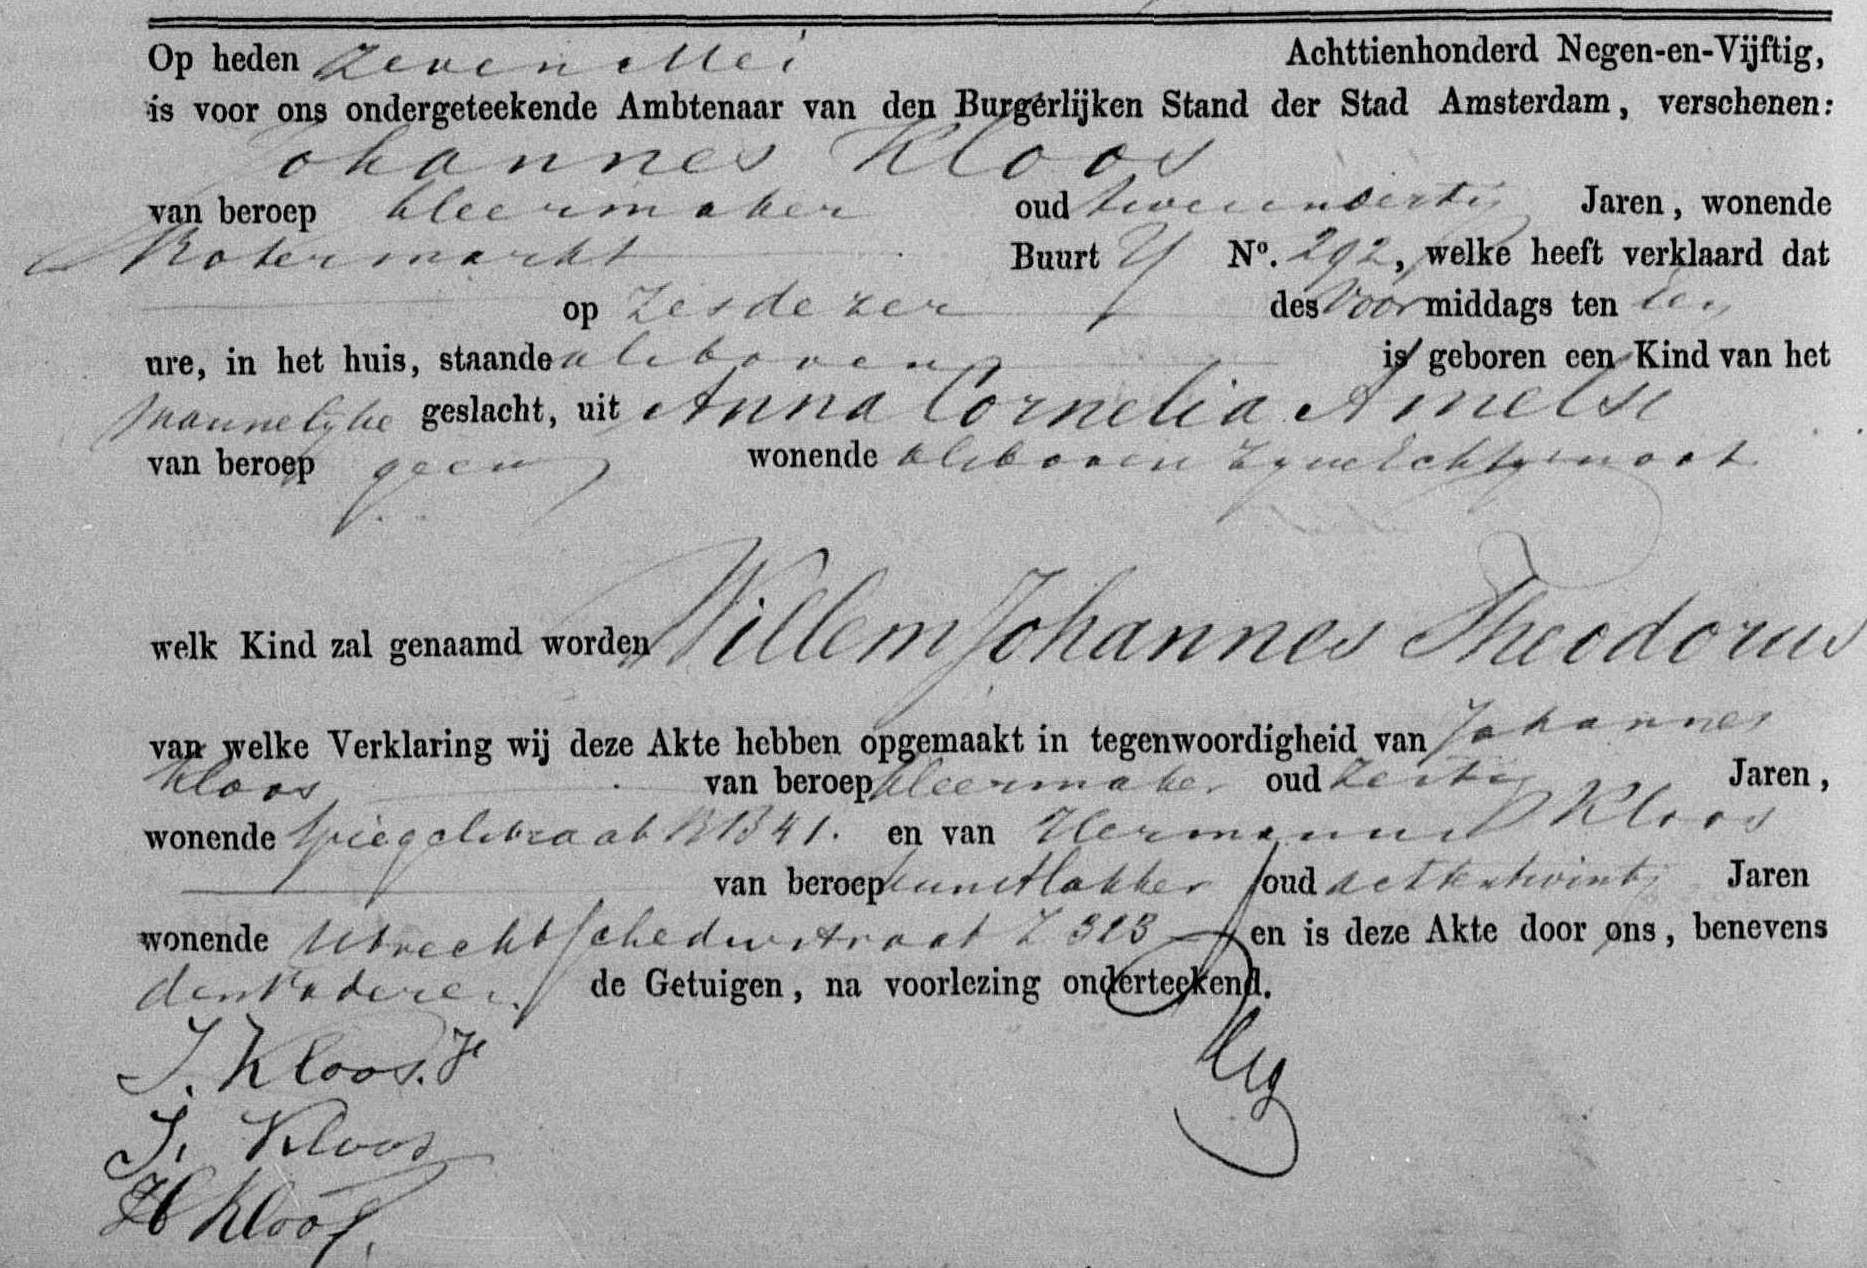 Op heden zeven Mei Achttienhonderd Negen-en-Vijftig,
is voor ons ondergeteekende Ambtenaar van den Burgerlijken Stand der Stad Amsterdam, verschenen:
Johannes Kloos
van beroep kleermaker oud tweeendertig Jaren, wonende
Botermarkt Buurt Y No. 292, welke heeft verklaard dat
op zesdezer des Voormiddags ten een
ure, in het huis, staande alsboven is geboren een Kind van het
Mannelijke geslacht, uit Anna Cornelia Amelse
van beroep geen wonende alsboven zyne Echtgenoot
welk Kind zal genaamd worden Willem Johannes Theodorus
van welke Verklaring wij deze Akte hebben opgemaakt in tegenwoordigheid van Johannes
Kloos van beroep kleermaker oud zestig Jaren,
wonende Spiegelstraat 41. en van Hermanus Kloos
van beroep oud achtentwintig Jaren
wonende Utrechtschedwstraat Z 323 en is deze Akte door ons, benevens
den Vader en de Getuigen, na voorlezing onderteekend.
J. Kloos. Jr
J. Kloos
H Kloos.